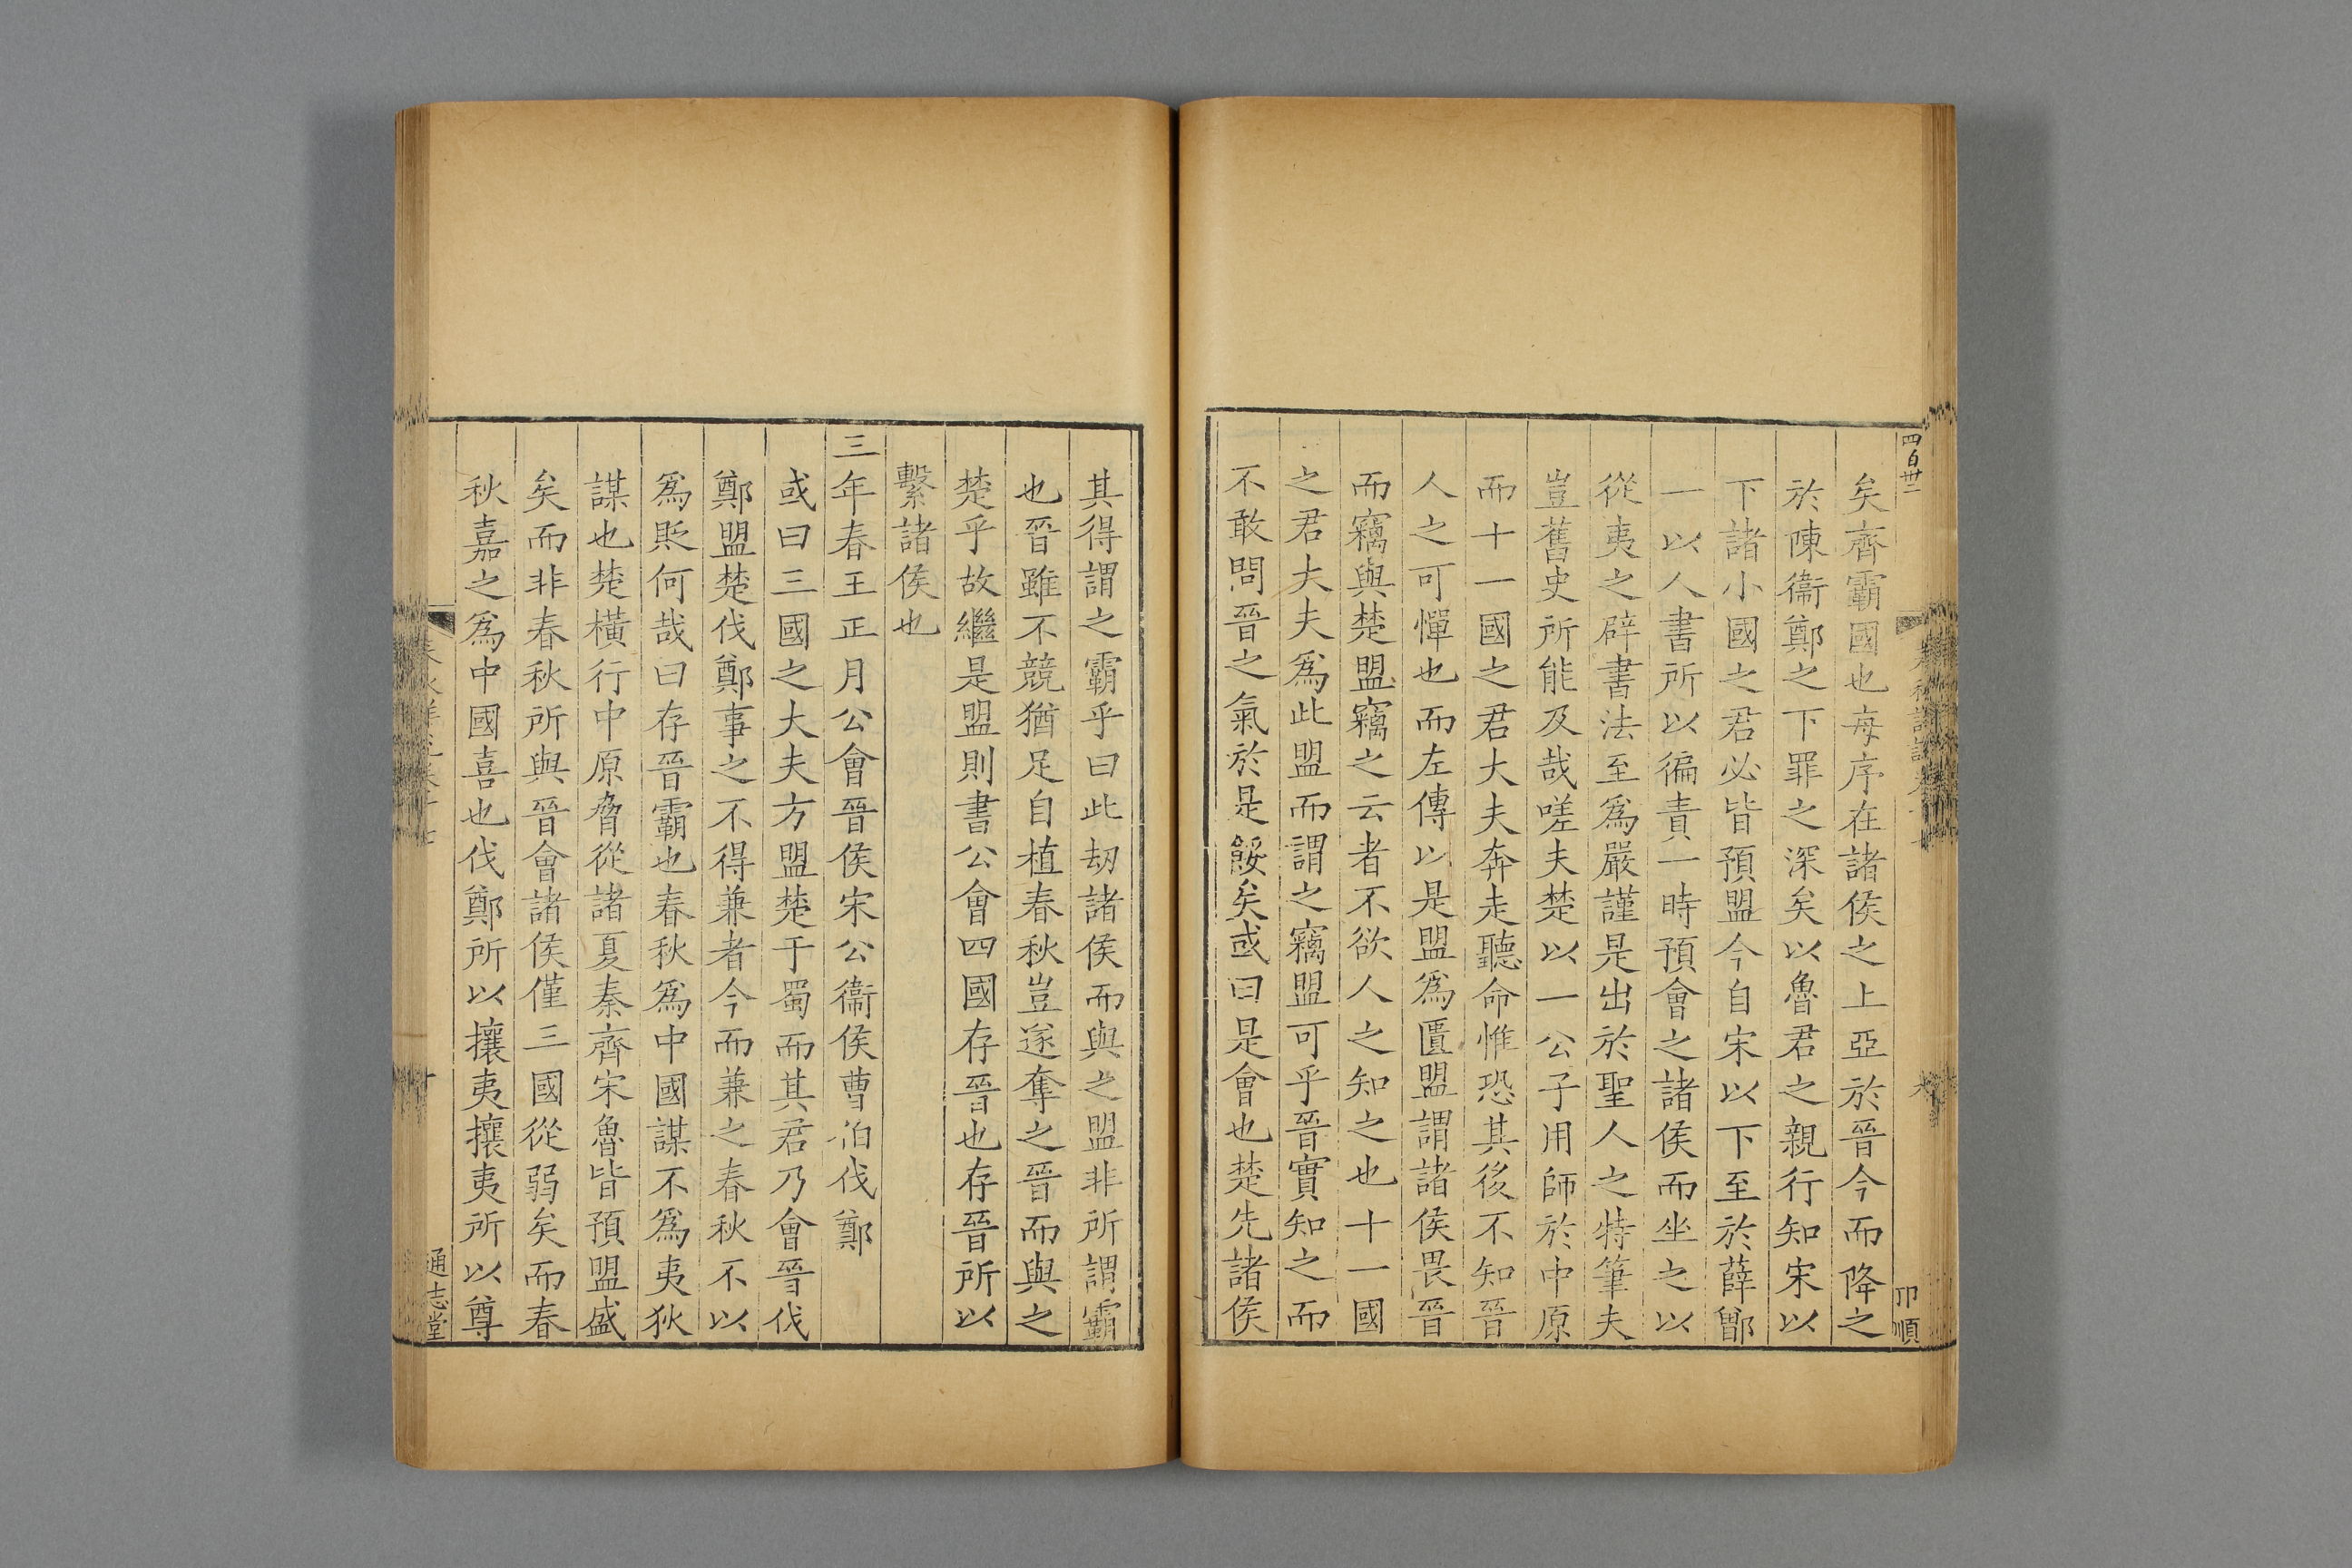 四百卅二
矣齊霸國也每序在諸侯之上亞於晉今而降之
於陳衞鄭之下罪之深矣以魯君之親行知宋以
下諸小國之君必皆預盟今自宋以下至於薛鄫
一以人書所以徧責一時預會之諸侯而坐之以
從夷之辟書法至爲嚴謹是出於聖人之特筆夫
豈舊史所能及哉嗟夫楚以一公子用師於中原
而十一國之君大夫奔走聽命惟恐其後不知晉
人之可憚也而左傳以是盟爲匱盟謂諸侯畏晉
而竊與楚盟竊之云者不欲人之知之也十一國
之君大夫爲此盟而謂之竊盟可乎晉實知之而
不敢問晉之氣於是餒矣或曰是會也楚先諸侯
其得謂之霸乎曰此刼諸侯而與之盟非所謂霸
也晉雖不競猶足自植春秋豈遂奪之晉而與之
楚乎故繼是盟則書公會四國存晉也存晉所以
繫諸侯也
三年春王正月公會晉侯宋公衞侯曹伯伐鄭
或曰三國之大夫方盟楚于蜀而其君乃會晉伐
鄭盟楚伐鄭事之不得兼者今而兼之春秋不以
爲貶何哉曰存晉霸也春秋爲中國謀不爲夷狄
謀也楚橫行中原脅從諸夏秦齊宋魯皆預盟盛
矣而非春秋所與晉會諸侯僅三國從弱矣而春
秋嘉之爲中國喜也伐鄭所以攘夷攘夷所以尊
通志堂